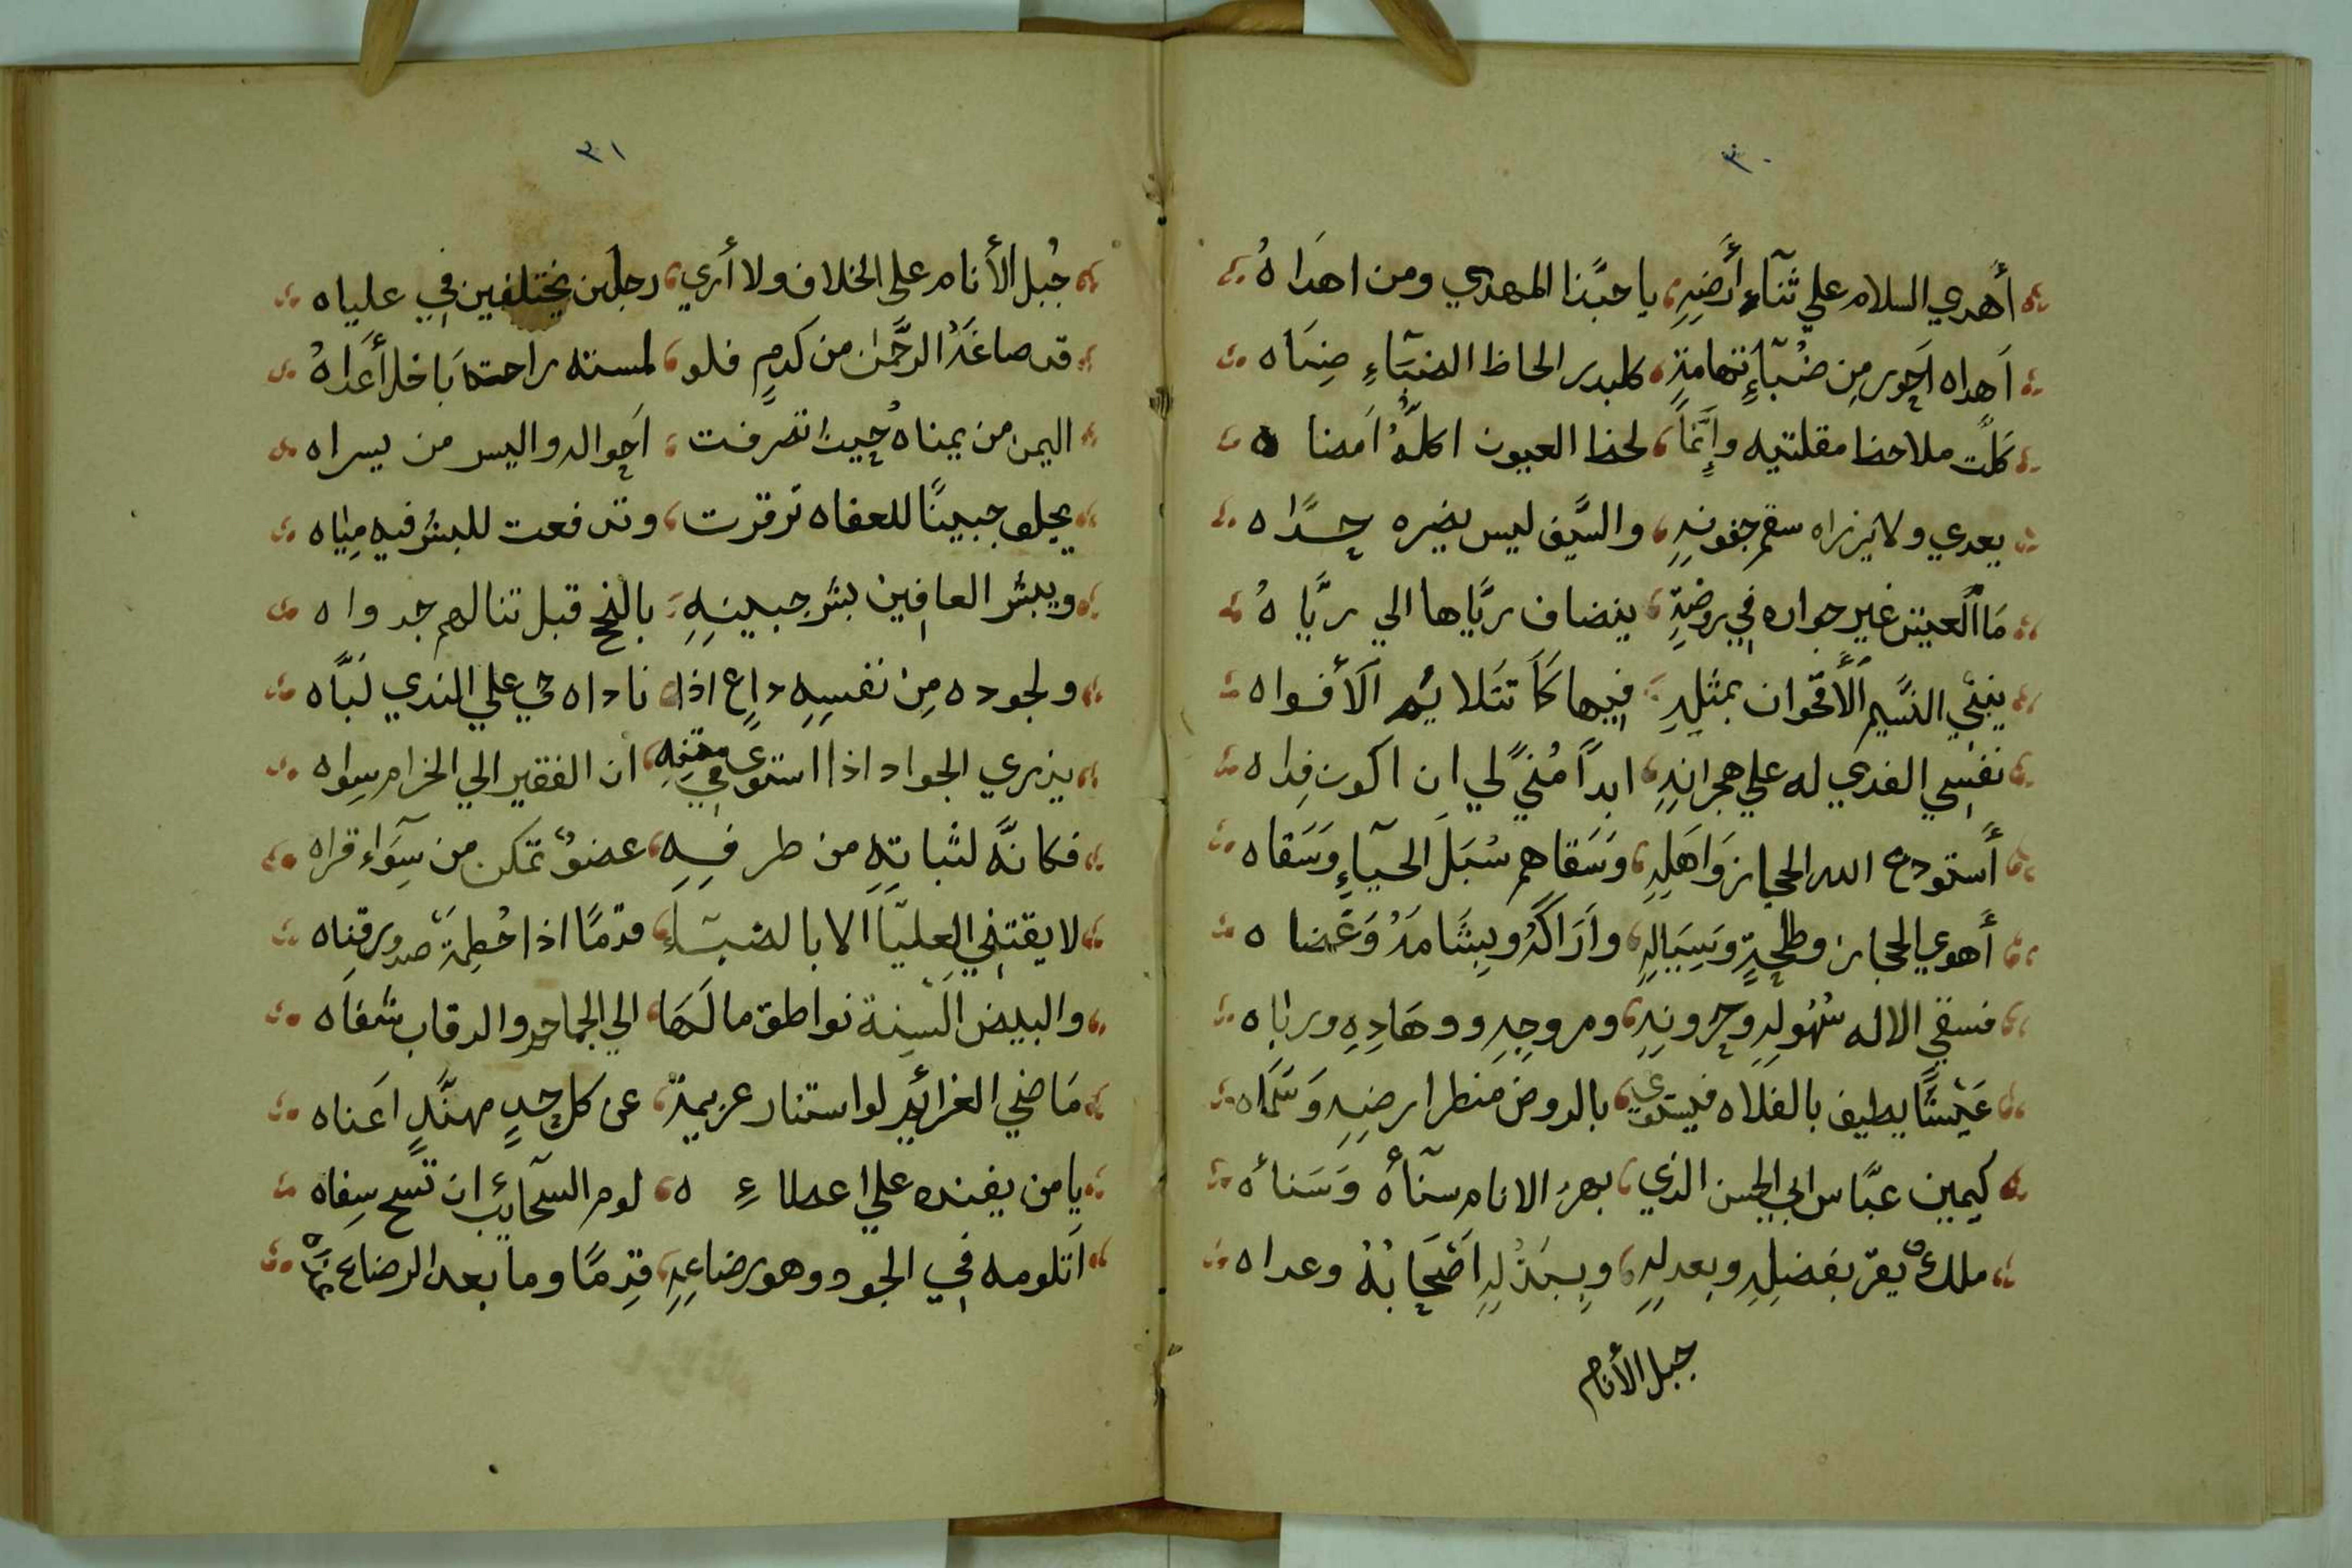 ٣٠
أَهدي السلام علي ثنآءِ أَرضِهِ يا حبَّذا المهدي ومن اهدَاهُ
اَهداه احَور مِن ضُبآءِ تهامةٍ كلبدر الحاظ الضبَآءِ ضِبَاه
كلَّت ملاحظ مقلتيه وإِنَّماَ لحظ العيون اكلُّهُ اَمضا ه
يعدي ولا يزراه سقم جفونهِ والسَّيف ليس يضيره حدَّاه
مَا العيش غير جواره في روضةٍ ينضاف ريَّاها الي ريَّا هُ
يثني النَّسيم الأَقحوان بمثلِهِ فيها كَمَا تتلايم الأَفواه
نفسِي الفدي له علي هجرانِهِ ابداً مُنيً لي ان اكون فِداه
أَستودع الله الحجاز وَاهَلِهِ وَسَقاهم سُبَلَ الحيآءِ وَسَقاه
أَهوي الحجاز وطلحهِ وَسِيَالِهِ واَرَاكَهُ وبِشَامَهُ وَغَضا ه
فسقي الاله سُهُولِهِ وحزونِهِ ومروجِهِ ووهَادِهِ ورباه
غَيْثًا يطيف بالفلاه فيستوي بالروض منظر ارضِهِ وَسَمَاه
كيمين عبَّاس ابي الحسن الذي بهرَ الانام سنَآهُ وَسَناهُ
ملكٌ يقرّ بفضلِهِ وبعدلِهِ وببَذْلِهِ اَصْحَابُهُ وعداه
جبل الأنام
٣١
جُبل الأنام على الخلاف ولا أري رجلين يختلفين في علياه
قد صاغَهُ الرَّحمن من كرمٍ فلو لمسته راحتهَ بَاخل أَعَداهُ
اليمن من يمناه حُيث تصرفت اَحوالهِ واليس من يسراه
يجلو جبينًا للعفاه ترقرت وتدفعت للبشر فيه مِيَاه
ويبشر العافِين بشر جبينِهِ بالنجح قبل تنالهم جدواه
ولجوده مِن نفسِهِ داعٍ اذا ناداه حي علي الندي لَبَّاه
يزري الجواد اذا استوي في متنِهِ ان الفقير الي الحزام سِواه
فكانَّه لثباتِهِ من طرفِهِ عضوٌ تمكن من سَوآءِ قراه
لا يقتني العِليَاَ الا بالضبآءِ قدمًا اذا حُطِمَة صدور قنِاه
والبيض اَلسِنة نواطق مالَهَا الي الجماجم والرقاب شفاه
مَاضي الغرائِم لو استنار عزيمةٍ عن كل حدٍ مهنَّدٍ اَغناه
يا من يفنده علي اعطاءِ ه لوم السَّحائِب ان تسح سِفاه
اَتلومه في الجود وهو رضاعِهِ قِدمًا وما بعد الرضاع